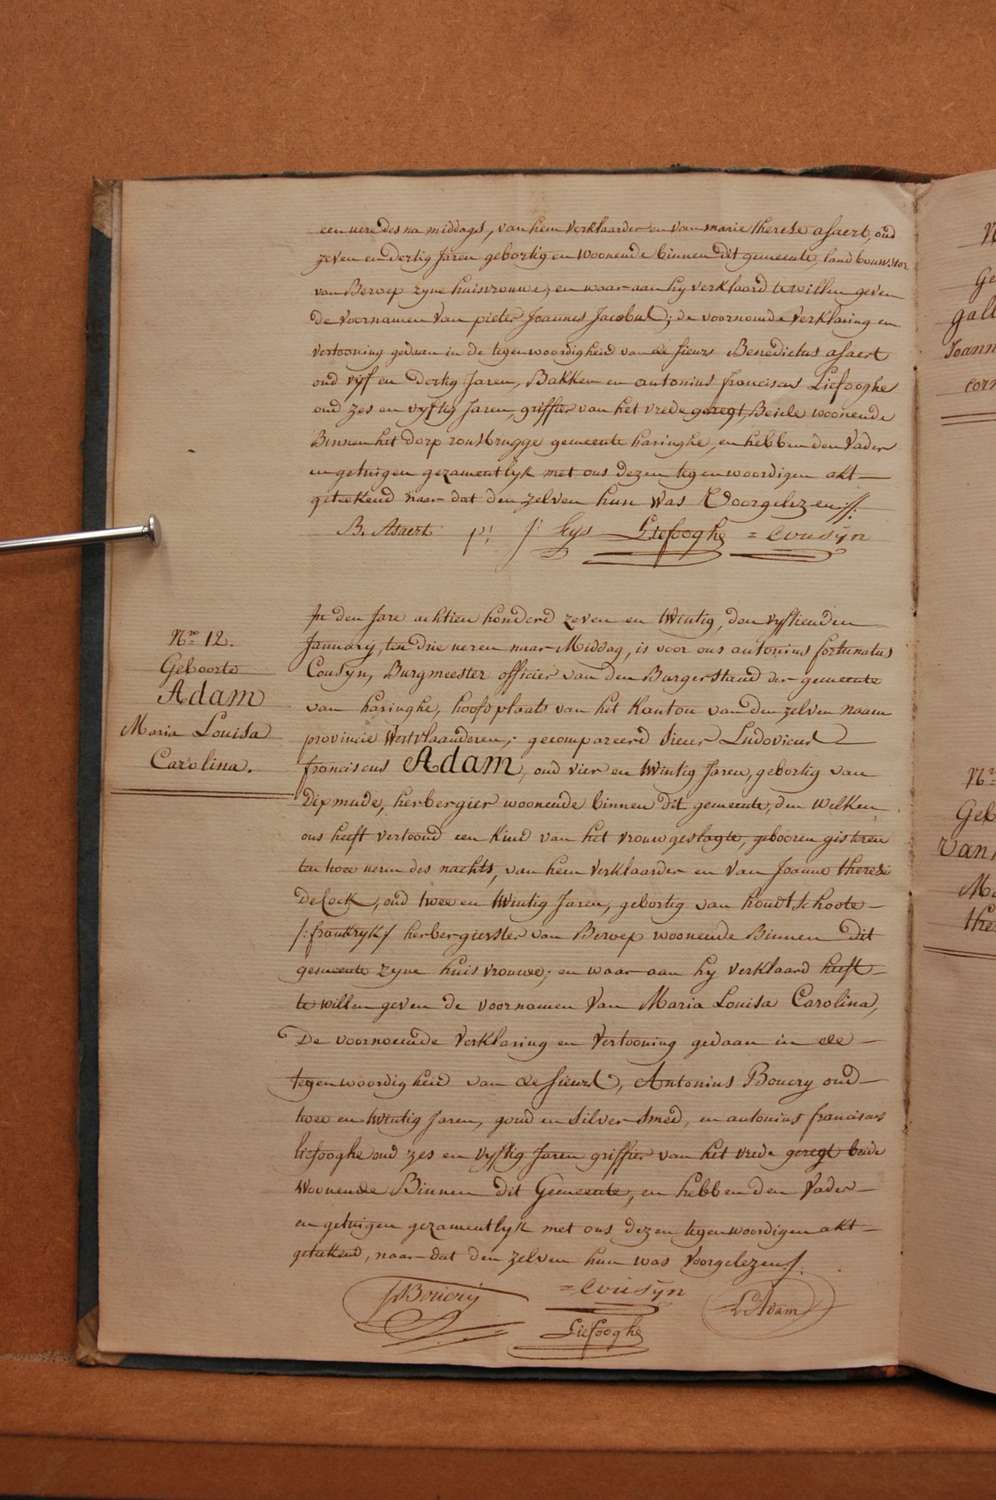 een uere des na middags, van hem verklaarder en van marie therese asaert, oud
zeven en dertig Jaren gebortig en woonende binnen dit gemeente, landbouwster
van Beroep zyne huisvrouwe; en waar aan hy verklaard te willen geven
de voornamen van pieter Joannes Jacobus; de voornoemde verklaring en
vertooning gedaan in de tegenwoordigheid van de sieurs Benedictus asaert
oud vyf en dertig Jaren, Bakker en antonius franciscus Liefooghe
oud zes en vyftig Jaren, griffier van het vrede geregt, Beide woonende
Binnen het dorp rousbrugge gemeente haringhe, en hebben den vader
en getuigen gezamentlyk met ons dezen tegenwoordigen akt
getekend naar dat den zelven hun was voorgelezen /.
B. Asaert p: j: Leys Liefooghe = Cousyn
In den Jare achtien honderd zeven en twintig, den vyftienden
January, ten drie ueren naar Middag, is voor ons antonius fortunatus
Cousyn, Burgmeester officier van den Burgerstand der gemeente
van haringhe, hoofdplaats van het kanton van den zelven naam
provincie Westvlaanderen; gecompareerd sieur Ludovicus
franciscus Adam, oud vier en twintig Jaren, gebortig van
Dixmude, herbergier woonende binnen dit gemeente, den welken
ons heeft vertoond een kind van het vrouwgeslagte, gebooren gisteren
ten twee ueren des nachts, van hem verklaarder en van Joanne therese
deCock, oud twee en twintig Jaren, gebortig van houdtschoote
/: frankryk / herbergierster van Beroep woonende Binnen dit
gemeente zyne huisvrouwe; en waar aan hy verklaard heeft
te willen geven de voornamen van Maria Louisa Carolina,
De voornoemde verklaring en vertooning gedaan in de
tegenwoordigheid van de sieurs, Antonius Boucry oud
twee en twintig Jaren, goud en silver smed, en antonius franciscus
liefooghe oud zes en vyftig Jaren griffier van het vrede geregt beide
woonende Binnen dit Gemeente, en hebben den vader
en getuigen gezamentlyk met ons dezen tegenwoordigen akt
getekend, naar dat den zelven hun was voorgelezen /.
Boucry = Cousyn L Adam
Liefooghe
N.ro 12.
Geboorte
Adam
Maria Louisa
Carolina.